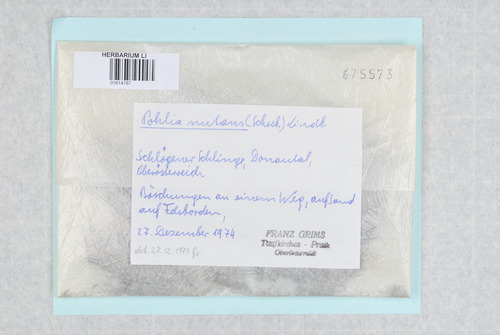 HERBARIUM LI
675573
Pohlia nutans (Schreb.) Lindb.
Schlögener Schlinge, Donautal,
Oberösterreich
Böschungen an einem Weg, auf Sand
auf Felsborden,
27. Dezember 1974
det. 27.12.1974 Gr
FRANZ GRIMS
Taufkirchen - Pram
Oberösterreich